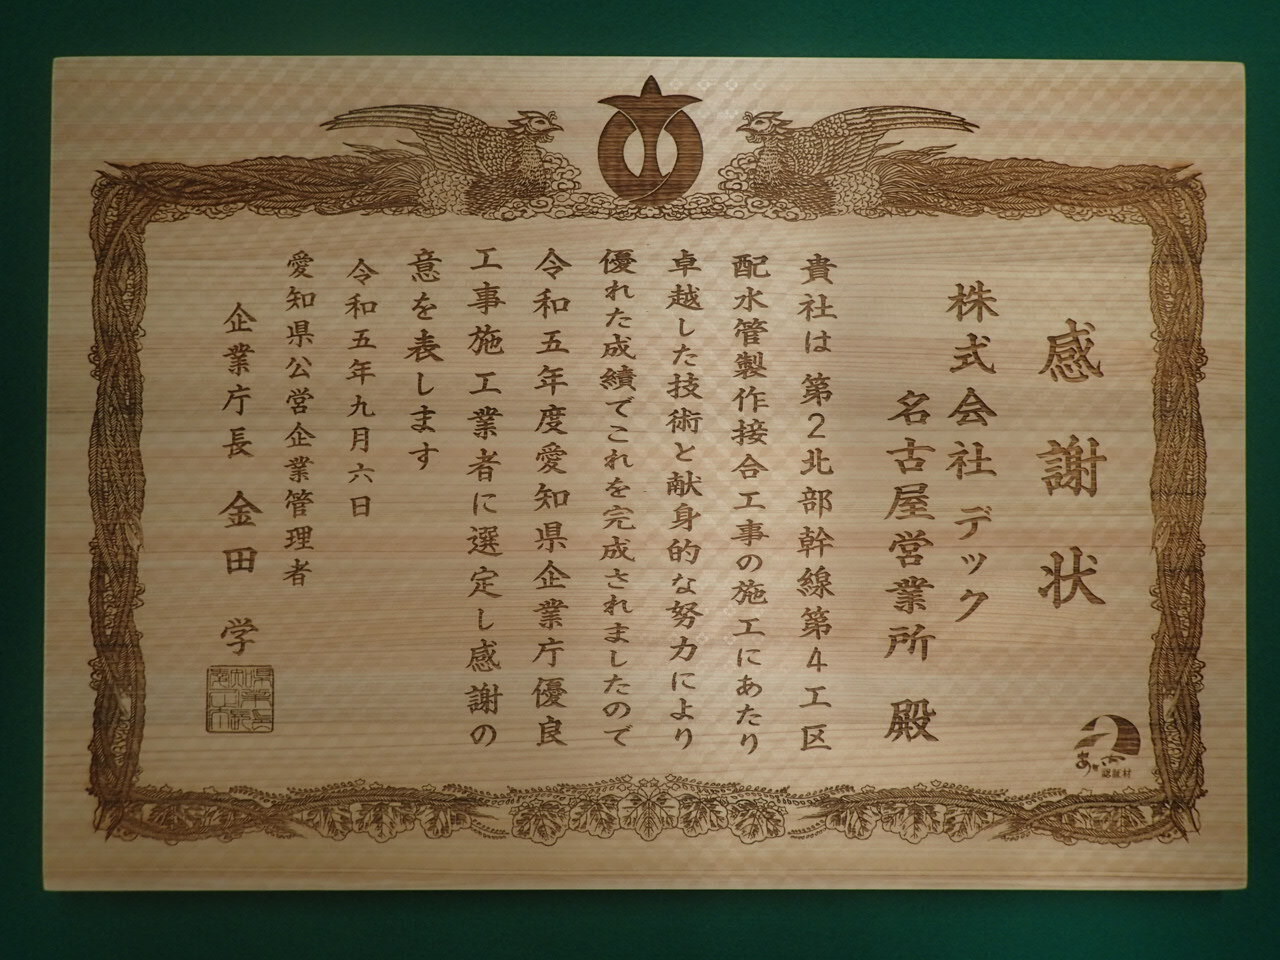 感謝状
株式会社デック
名古屋営業所 殿
貴社は第2北部幹線第4工区
配水管製作接合工事の施工にあたり
卓越した技術と献身的な努力により
優れた成績でこれを完成されましたので
令和五年度愛知県企業庁優良
工事施工業者に選定し感謝の
意を表します
令和五年九月六日
愛知県公営企業管理者
企業庁長 金田 学
認証材